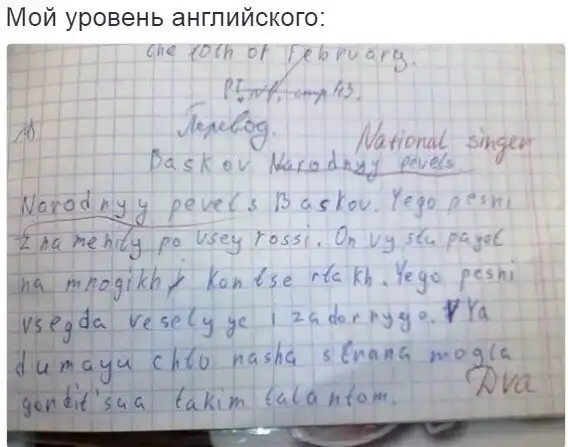 Мой уровень английского:
the 10th of February.
Перевод.
National singer
Baskov Narodnyy pevets.
Narodnyy pevets Baskov. Yego pesni
znamenity po vsey rossi. On vystupayet
na mnogikh kontsertakh. Yego pesni
vsegda veselyye i zadornyyo. Ya
dumayu chto nasha strana mogla
gordit'sua takim talantom.
Dva